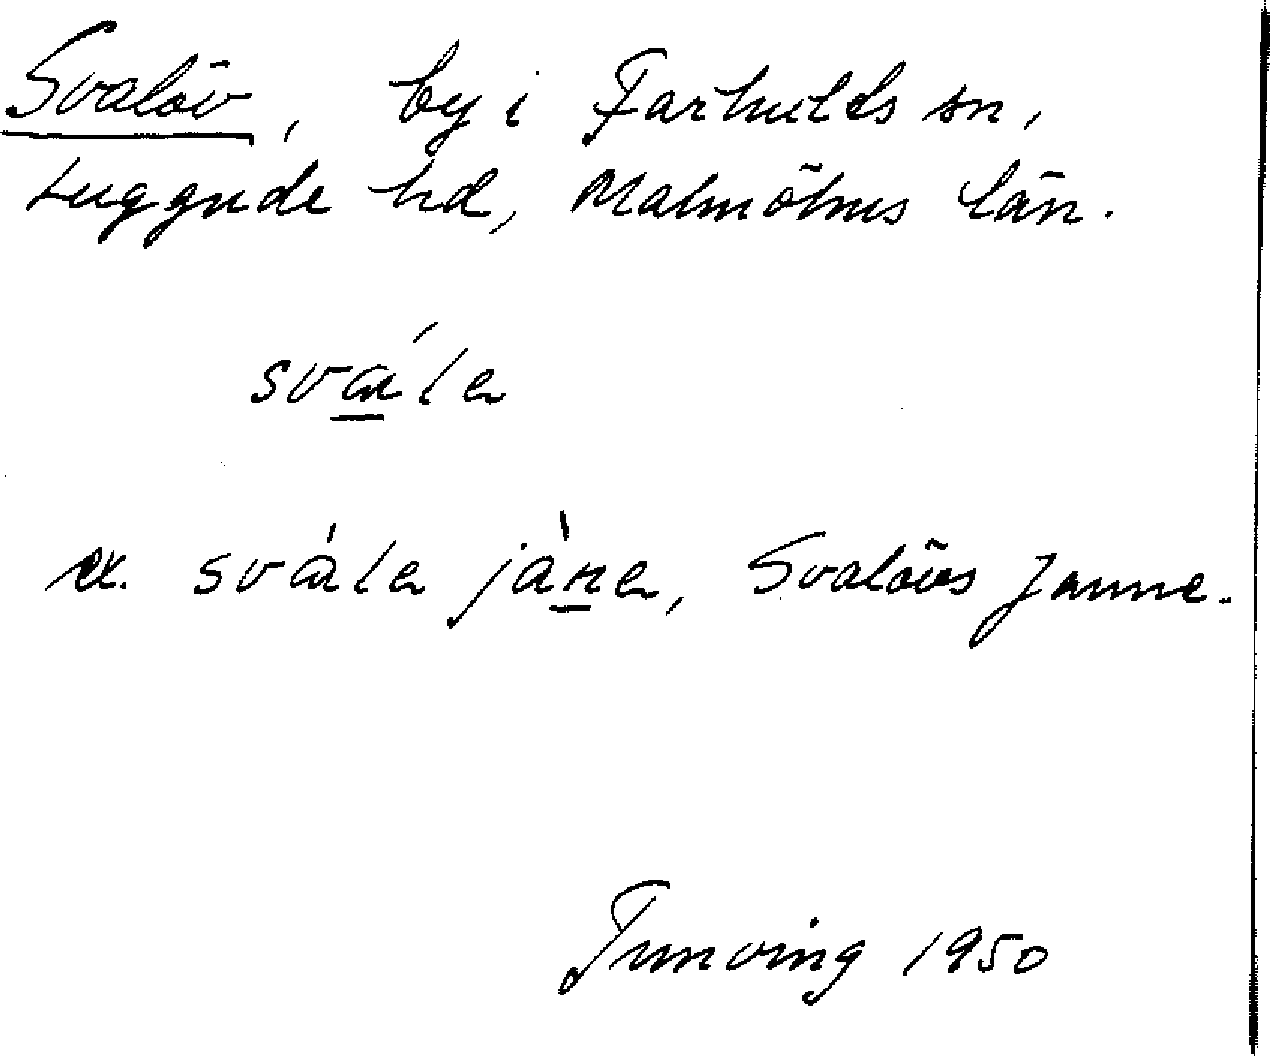 Svalöv, by i Farhults sn,
Luggude hd, Malmöhus län.
svále
ex. svále jàne, Svalövs Janne.
Tunving 1950